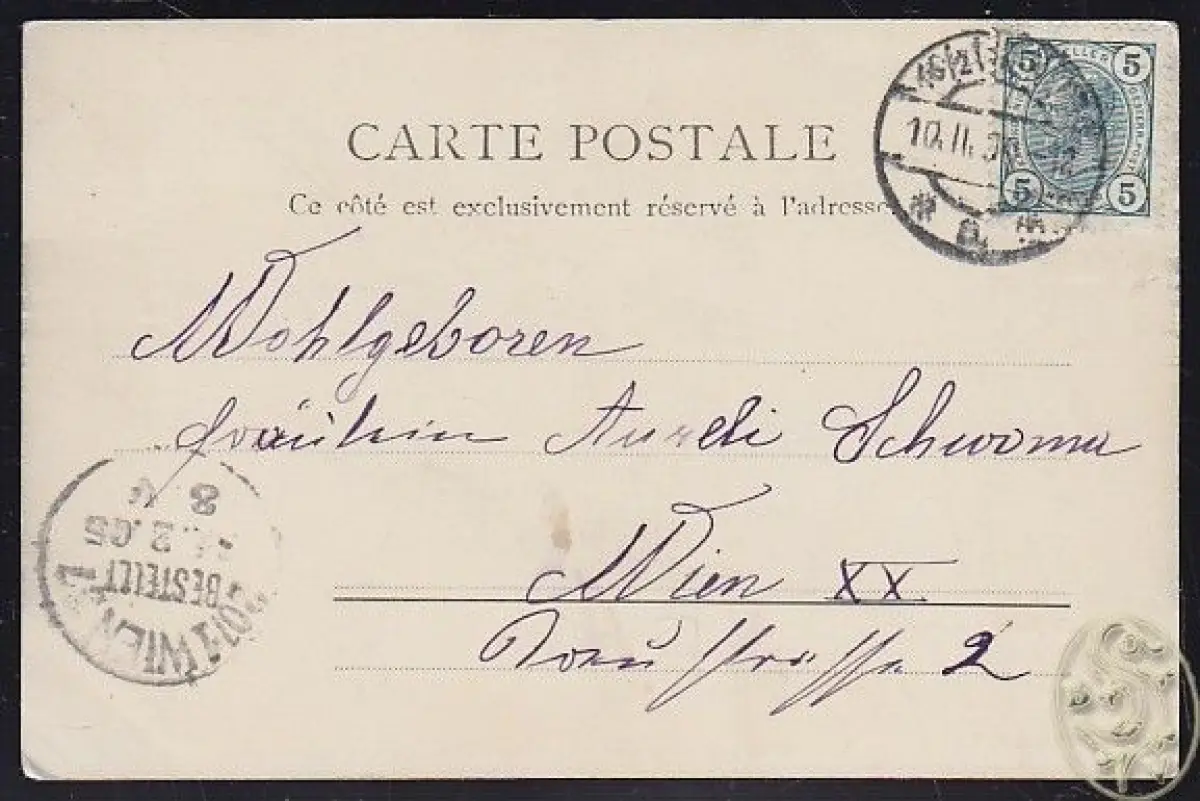 CARTE POSTALE
Ce côté est exclusivement réservé à l'adresse
5 HELLER 5
5 5
10.II.
Wohlgeboren
Fräulein Aureli Schwoma
Wien XX.
strasse 2
8
2.05
BESTELLT
WIEN